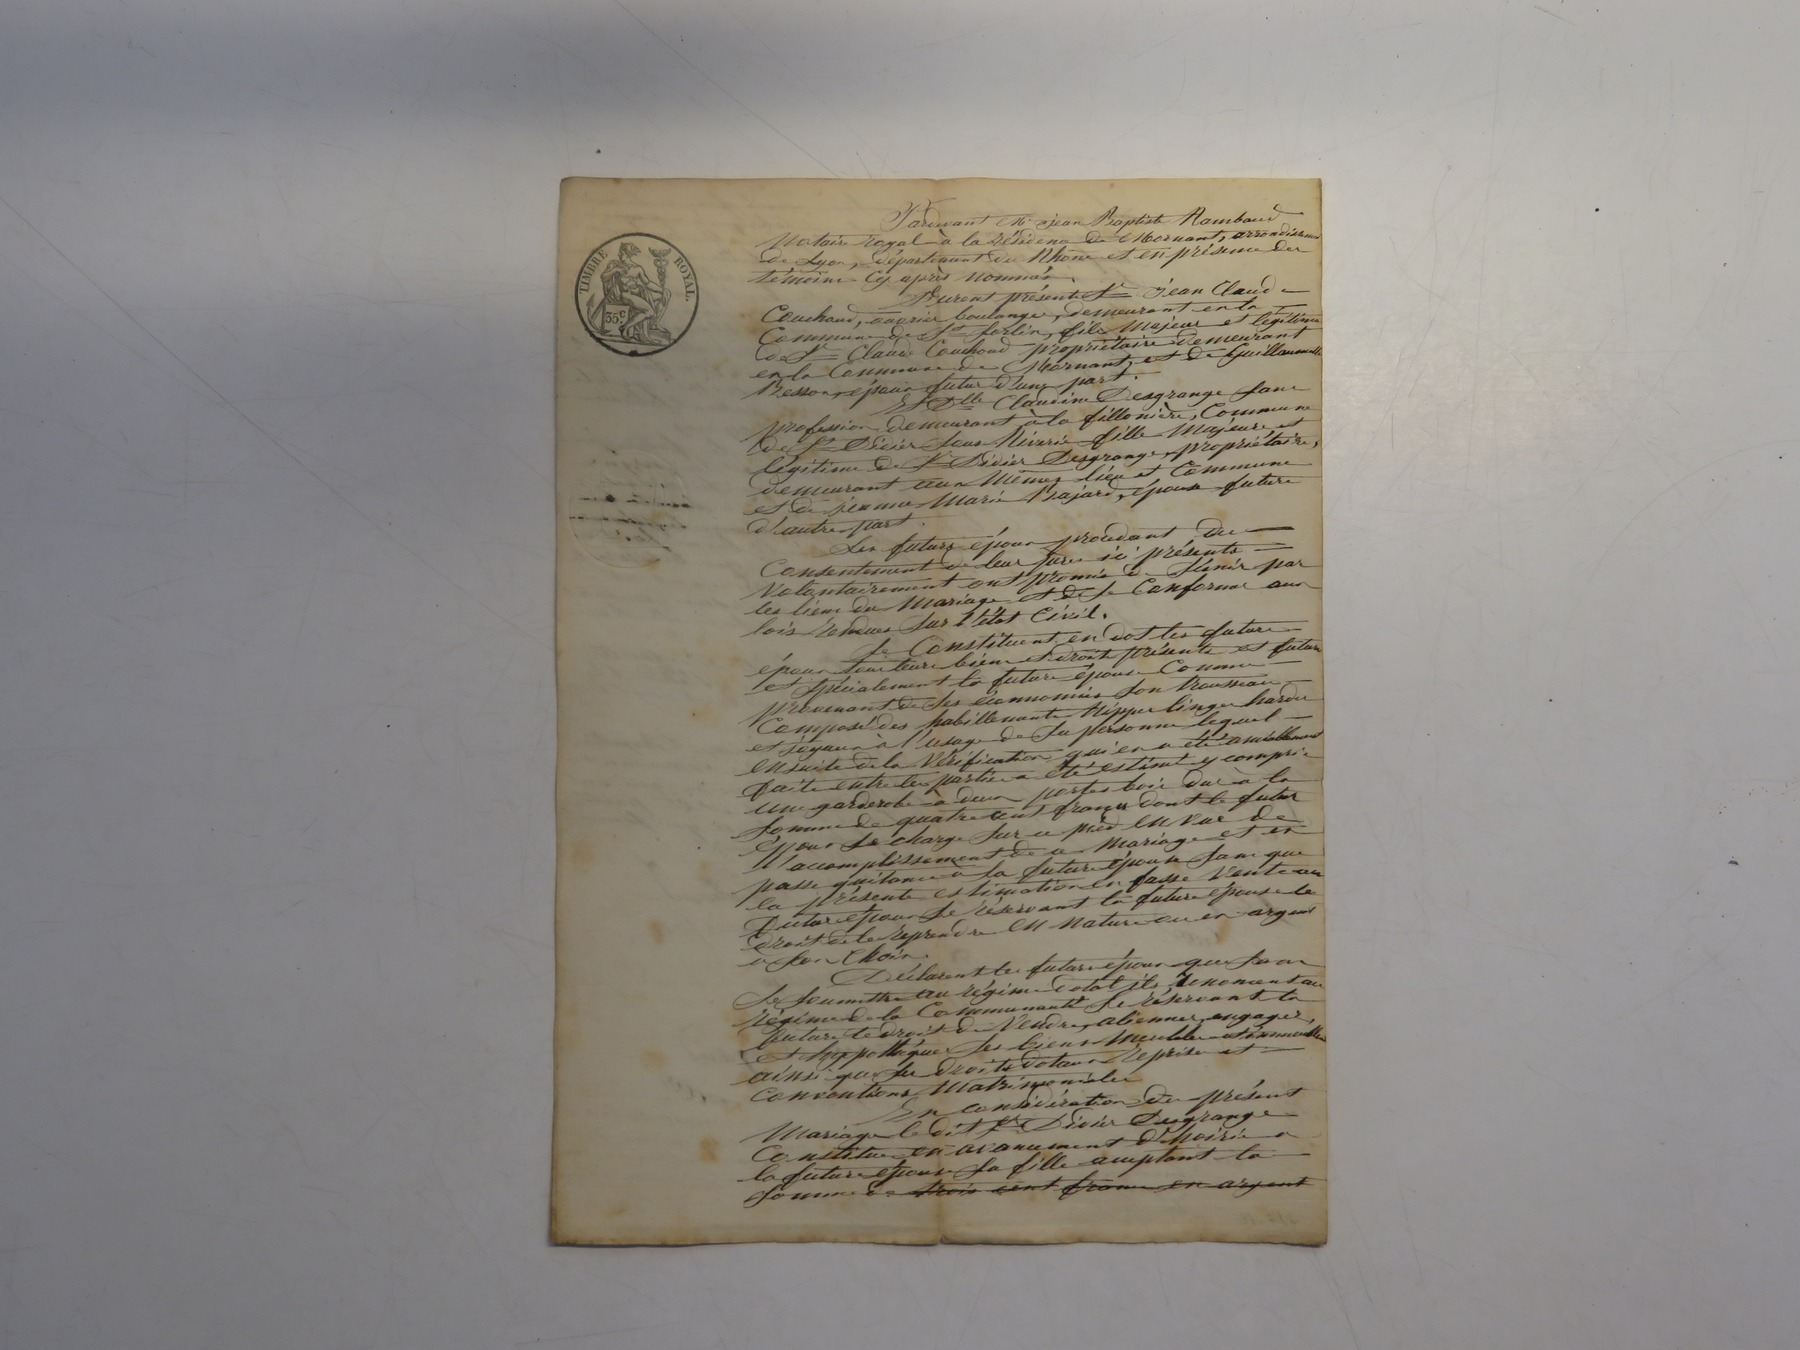 TIMBRE ROYAL.
35c
Pardevant Me Jean Baptiste Rambaud
Notaire royal à la résidence de Mornant, arrondissement
de Lyon, département du Rhône et en présence des
témoins cy après nommés
Furent présents Sr Jean Claude
Couchoud, ouvrier boulanger, demeurant en la
Commune de St Sorlin, fils Majeur et légitime
de Sr Claude Couchoud propriétaire demeurant
en la Commune de Mornant, et de Guillaumette
Besson, époux futur d'une part.
Et Dlle Claudine Desgrange sans
profession, demeurant à la fillonière, Commune
de St Didier sous Riverie fille Majeure et
légitime de Sr Didier Desgrange, propriétaire,
demeurant aux Mêmes lieu et Commune
et de Jeanne Marie Bajard, épouse future
d'autre part.
Les futurs époux procédant du
Consentement de leur père ici présents
Volontairement ont promis de s'unir par
les liens du Mariage et de se Conformer aux
lois rendues sur l'état Civil.
Se Constituent en dot les futurs
époux tous leurs biens et droits présents et futurs
et spécialement la future épouse Comme
provenant de ses économies son trousseau
Composé des habillements Nippes linges hardes
et joyaux à l'usage de sa personne lequel
ensuite de la Vérification qui en a été amiablement
faite entre les parties a été estimé y compris
une garderobe à deux portes bois dur à la
somme de quatre cent francs dont le futur
époux se charge sur ce pied en vue de
l'accomplissement de ce Mariage et en
passe quitance à la future épouse sans que
la présente estimation en fasse Vente au
futur époux se réservant la future épouse le
droit de le reprendre en Nature ou en argent
à son Choix.
Déclarent les futurs époux que
se soumettre au régime dotal ils renoncent au
régime de la Communauté se réservant la
future le droit de Vendre, aliener, engager,
et hyppothéquer ses biens Meubles et immeubles
ainsi que ses droits dotaux reprises et
conventions Matrimoniales
En considération du présent
Mariage le dit Sr Didier Desgrange
Constitue en avancement d'hoirie a
la future épouse sa fille acceptant la
somme de trois cent francs en argent